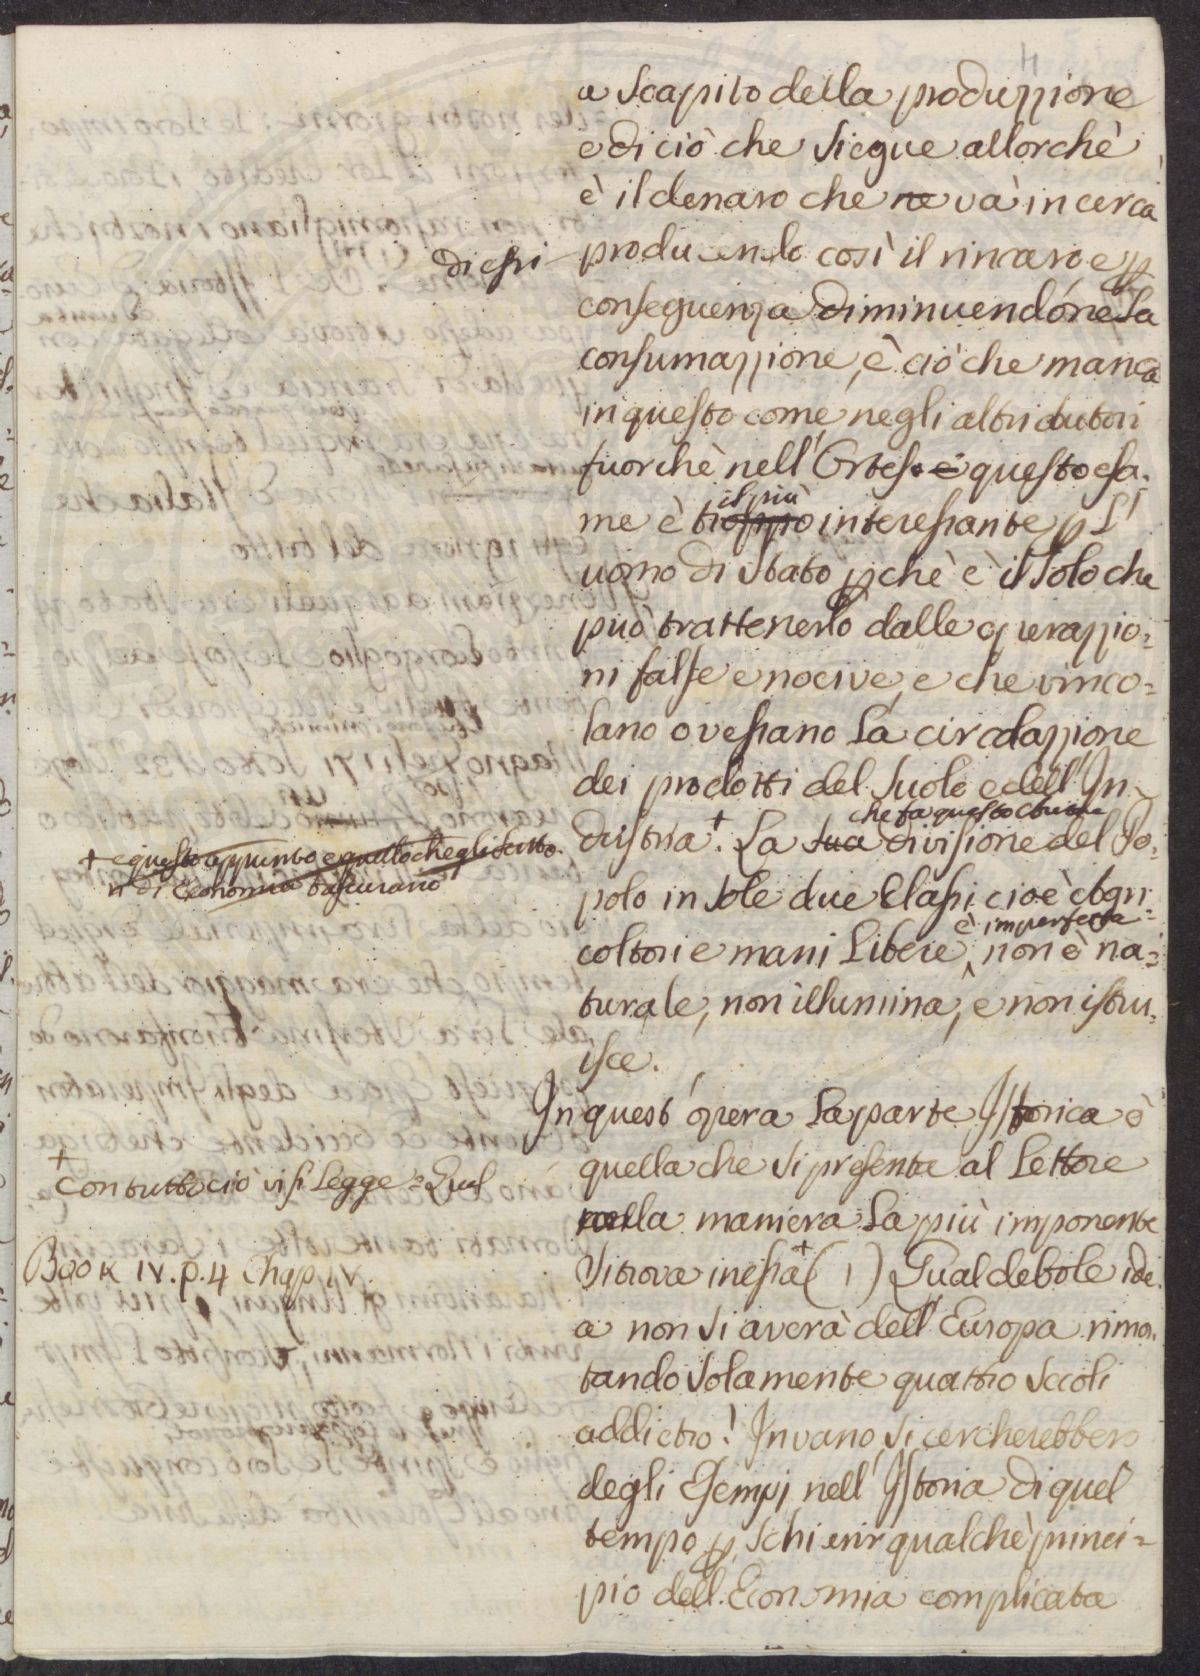 4
a scapito della produzzione
e di ciò che siegue allorchè
è il denaro che ne và in cerca
di essi
producendo così il rincaro e p
conseguenza diminuendóne la
consumazzione, è ciò che manca
in questo come negli altri Autori
fuorchè nell' Ortes. e questo esa-
il più
me è troppo interessante p L'
uomo di Stato pchè è il solo che
può trattenerlo dalle operazzio=
ni false e nocive, e che vinco=
lano o vessano la circolazzione
dei prodotti del suolo e dell' In-
che fa questo Autore
dustria +. La sua divisione del Po-
+ e questo appunto e quello che gli Scitto-
ri di Economia trascurano
polo in sole due Classi cioè Agri=
è imperfetta
coltori e mani Libere ^ non è na=
turale, non illumina, e non istru-
isce.
In quest' opera La parte Istorica è
quella che si presenta al Lettore
nella maniera la più imponente
+
Con tutto ciò vi si Legge = Qual
Si trova in essa + (1) Qual debole ide-
Book IV. p. 4 Chap IV.
a non si averà dell' Europa rimon-
tando solamente quattro secoli
addietro! Invano si cercherebbero
degli Esempj nell' Istoria di quel
tempo p schierir qualchè princi=
pio dell' Economia complicata